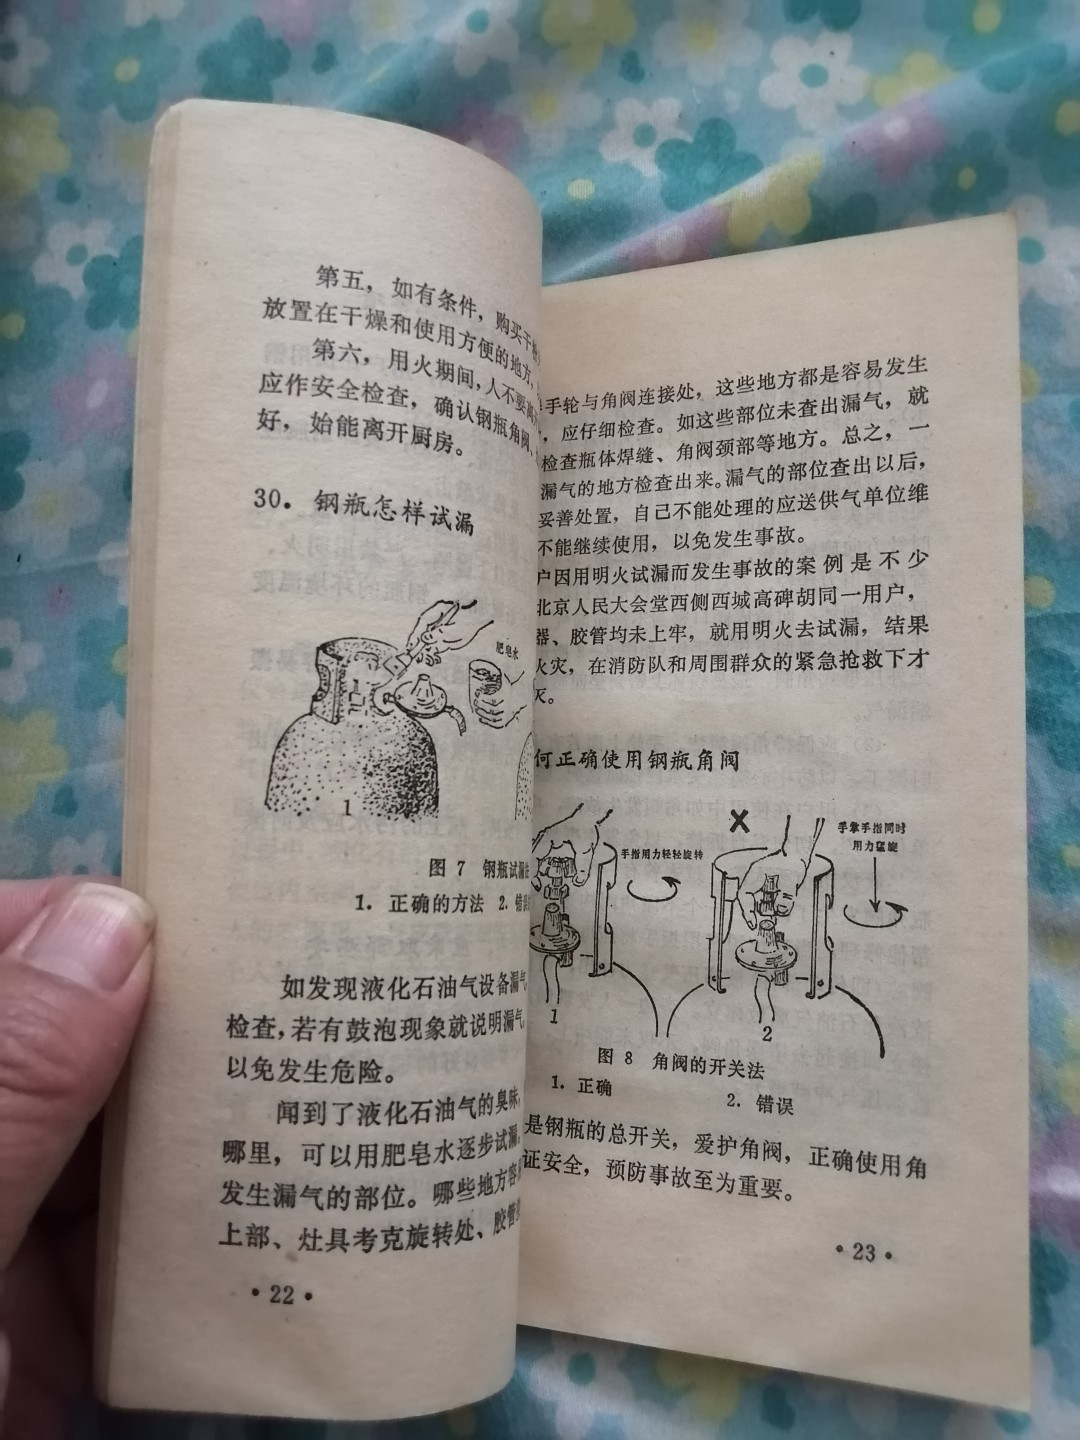 第五，如有条件，购买干粉
放置在干燥和使用方便的地方，
第六，用火期间，人不要离
应作安全检查，确认钢瓶角阀、
好，始能离开厨房。
30. 钢瓶怎样试漏
肥皂水
1
图 7 钢瓶试漏
1. 正确的方法 2. 错误
如发现液化石油气设备漏气，
检查，若有鼓泡现象就说明漏气，
以免发生危险。
闻到了液化石油气的臭味，
哪里，可以用肥皂水逐步试漏，
发生漏气的部位。哪些地方容
上部、灶具考克旋转处、胶管
•22•
手轮与角阀连接处，这些地方都是容易发生
，应仔细检查。如这些部位未查出漏气，就
检查瓶体焊缝、角阀颈部等地方。总之，一
漏气的地方检查出来。漏气的部位查出以后，
妥善处置，自己不能处理的应送供气单位维
不能继续使用，以免发生事故。
户因用明火试漏而发生事故的案例是不少
北京人民大会堂西侧西城高碑胡同一用户，
器、胶管均未上牢，就用明火去试漏，结果
火灾，在消防队和周围群众的紧急抢救下才
灭。
何正确使用钢瓶角阀
手指用力轻轻旋转
X
手掌手指同时
用力猛旋
1
2
图 8 角阀的开关法
1. 正确 2. 错误
是钢瓶的总开关，爱护角阀，正确使用角
证安全，预防事故至为重要。
•23•